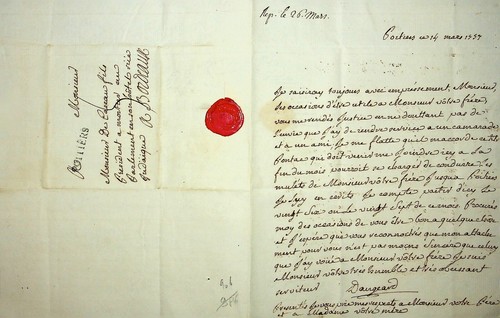 Rep. le 26 Mars.
Poitiers ce 14 mars 1757
Je saisiray toujours avec empressement, Monsieur,
les occasions d'être utile a Monsieur votre frère
vous me rendés Justice en ne doutant pas de
l'envie que J'ay de rendre service a un camarade
et a un ami. Je me flatte qu'il
Pontac qui doit venir me Joindre icy a la
fin du mois pourroit se charger de conduire les
mulets de Monsieur votre frère Jusqua Poitiers
Je luy en ecrits Je compte partir dicy le
vingt Six ou le vingt Sept de ce mois Procurés
moy des occasions de vous être bon a quelque chose
et J'espère que vous reconnoitrés que mon attache-
ment pour vous n'est pas moins Sincère que celuy
que J'ay voué a Monsieur votre frère Je suis
Monsieur votre très humble et très obeissant
serviteur Daugeard
Presentés Je vous prie mes respects a Monsieur votre Père
et a Madame votre mère
POITIERS
Monsieur
Monsieur De fils
President a mortier au
Parlement en son hotel rüe
Judaique A Bordeaux